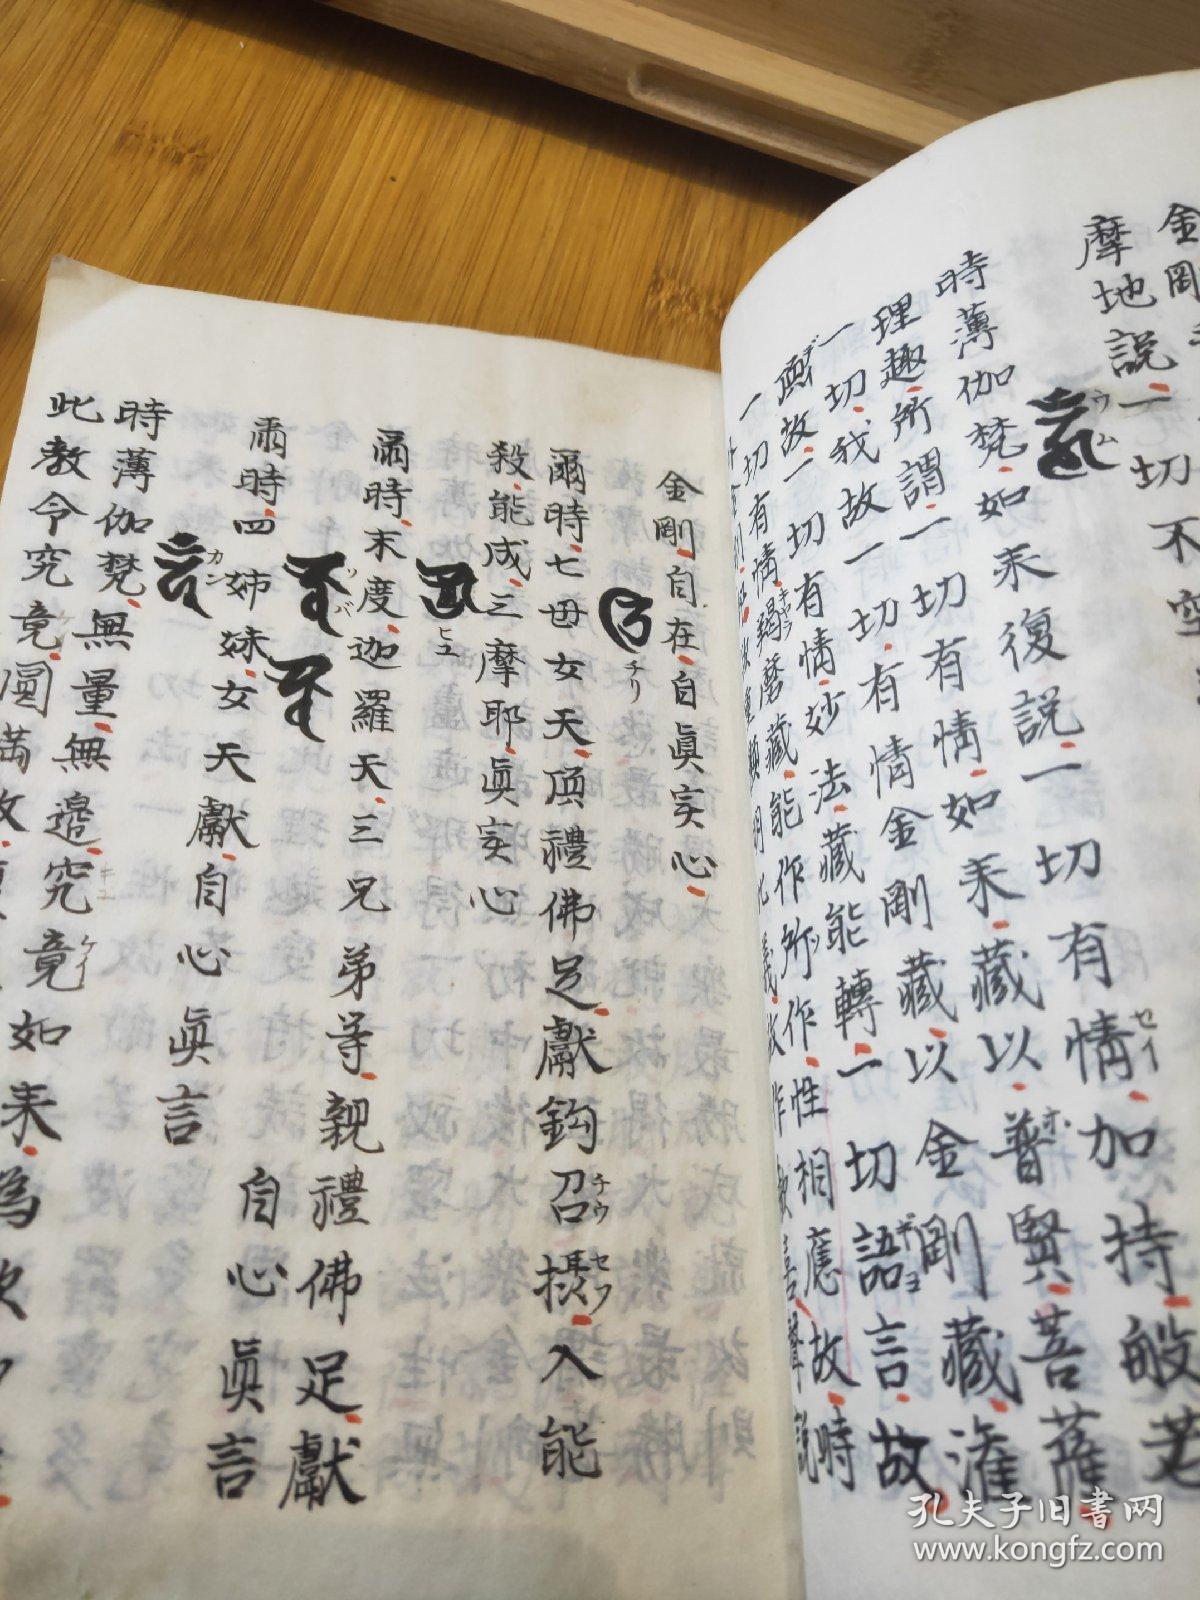 金剛手
摩地説一切不空
ウム
時薄伽梵如来復説一切有情加持般若
セイ
理趣所謂一切有情如来藏以普賢菩薩
ホ
一切我故一切有情金剛藏以金剛藏灌
頂故一切有情妙法藏能轉一切語言故
ギヨ
一切有情羯磨藏能作所作性相應故時
金剛自在自真实心
チリ
爾時七母女天頂禮佛足獻鈎召攝入能
チウ
セフ
殺能成三摩耶真実心
ヒユ
爾時末度迦羅天三兄弟等親禮佛足獻
自心真言
ソバ
爾時四姉妹女天獻自心真言
カン
時薄伽梵無量無邊究竟如来為
キユ
ケイ
此教令究竟圓滿故
孔夫子旧书网
www.kongfz.com